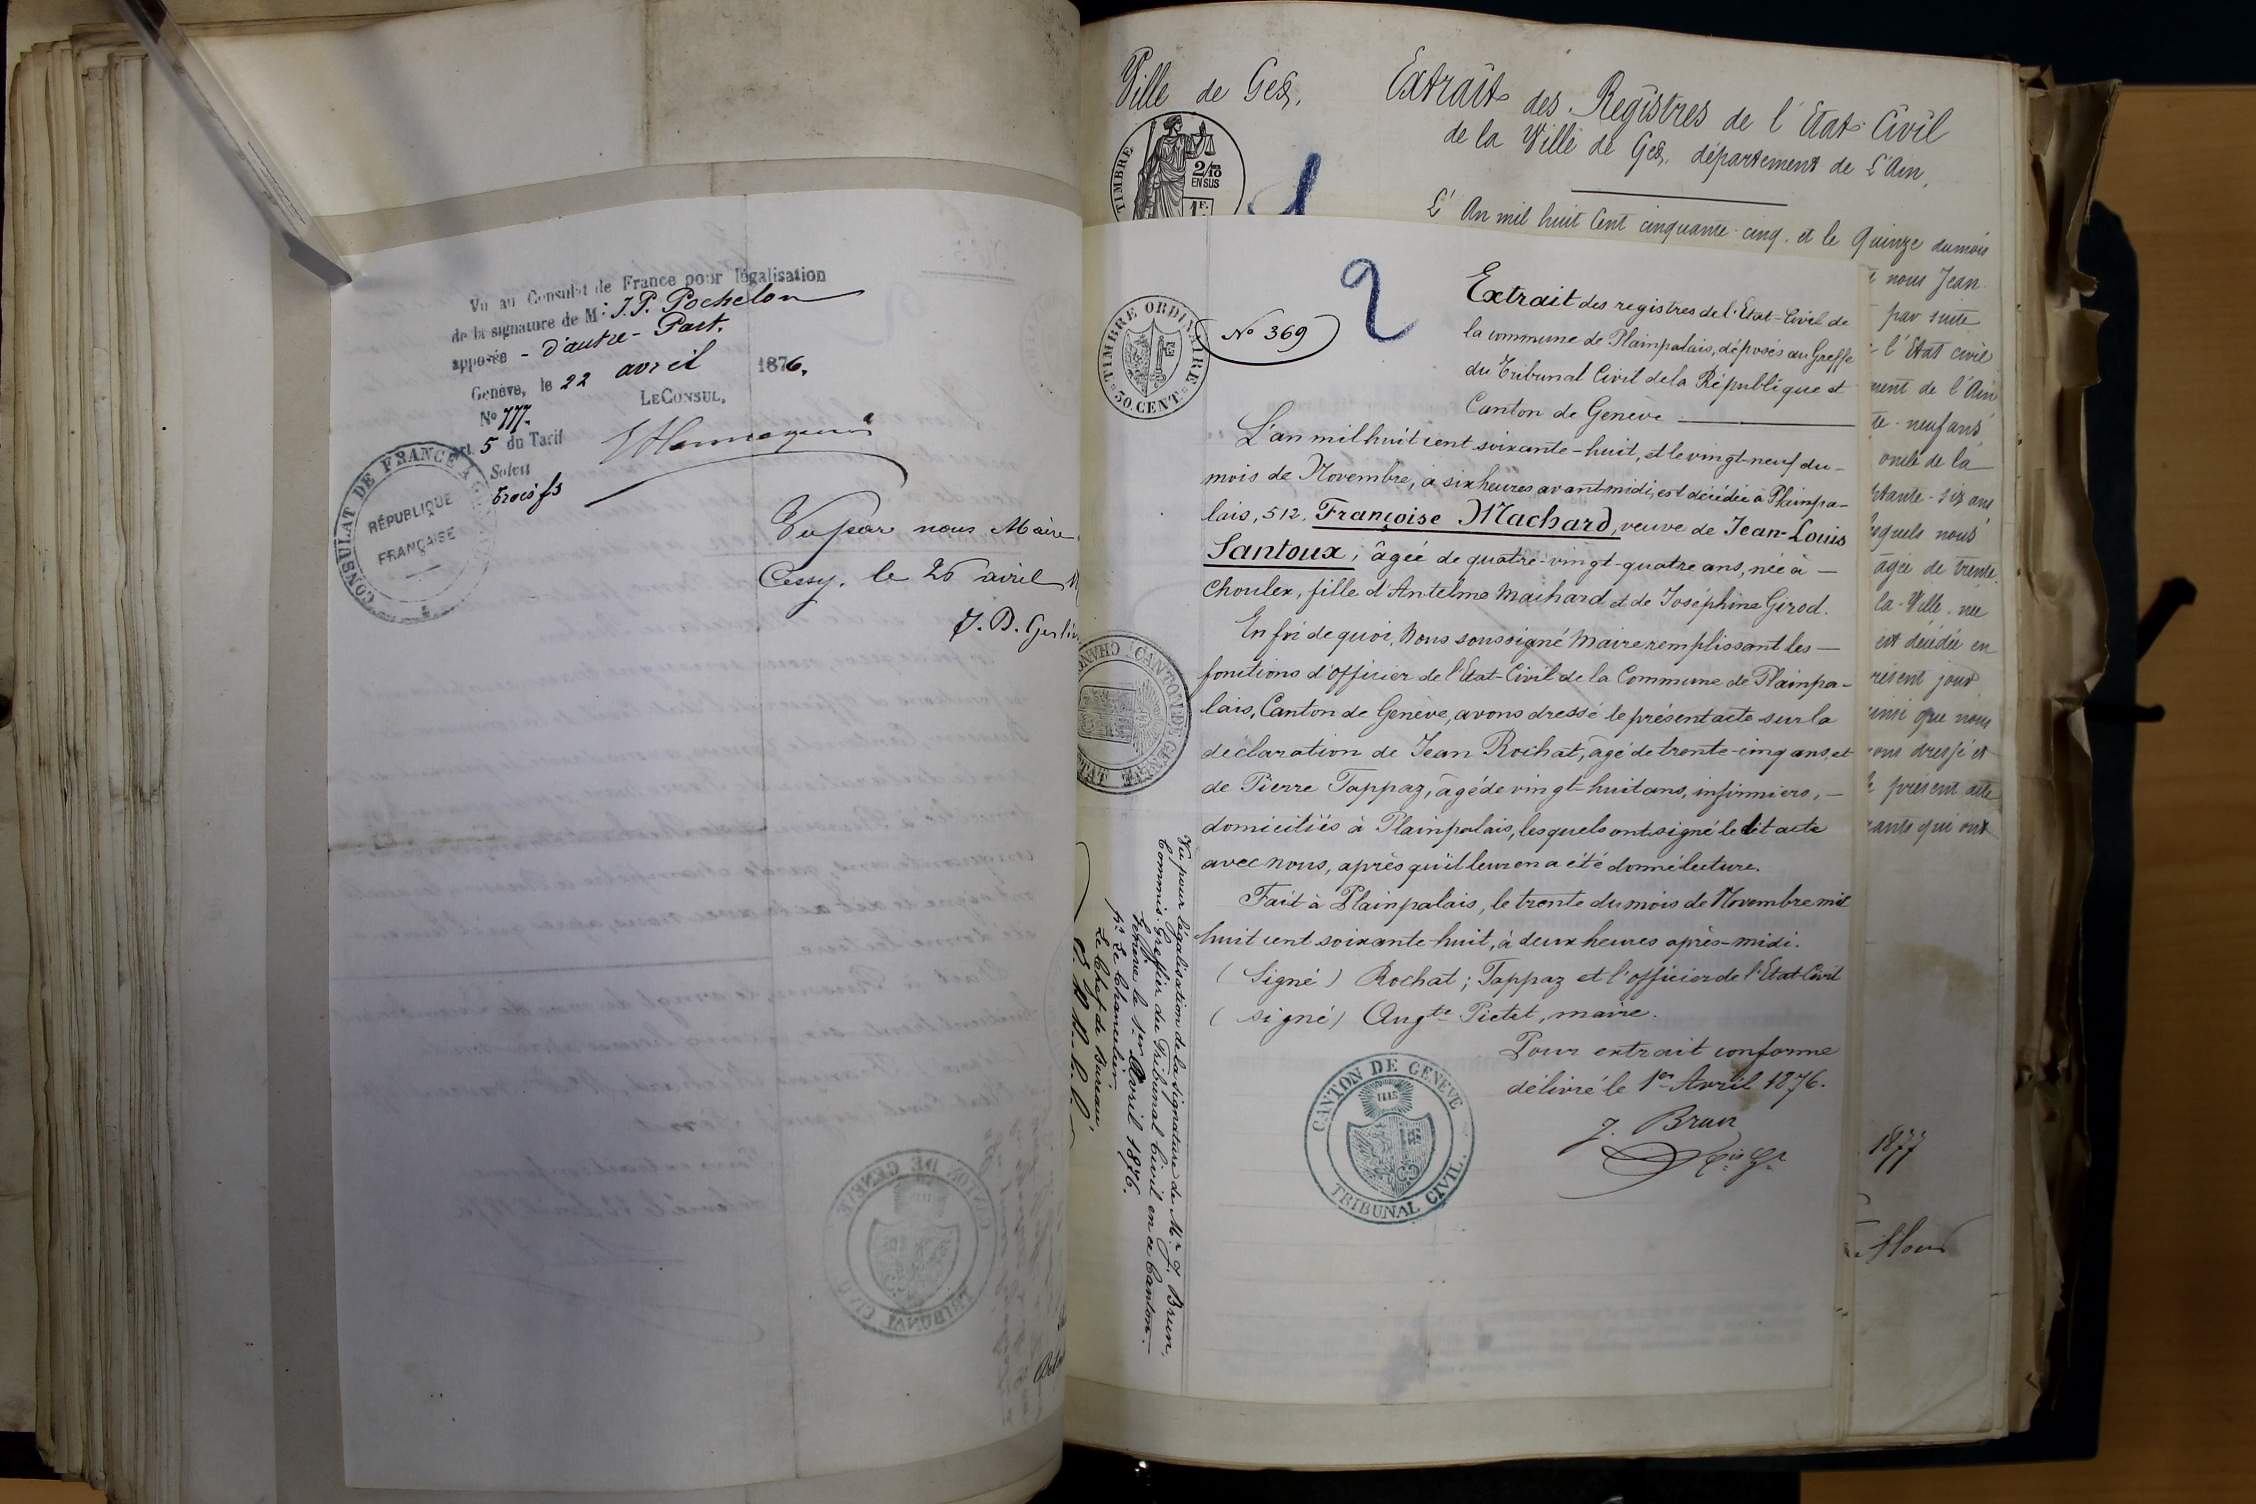 Vu au Consulat de France pour légalisation
de la signature de M: J. P. Pochelon
apposée - d'autre - Part.
Genève, le 22 avril 1876.
LE CONSUL,
No 777.
5 du Tarif
Solvit
trois fs
CONSULAT DE FRANCE A
RÉPUBLIQUE
FRANÇAISE
Vu par nous Maire
Cessy, le 26 avril
Ville de Gex.
Extrait des Registres de l'Etat Civil
de la Ville de Gex, département de L'Ain,
TIMBRE
2/10
EN SUS
1F.
L'An mil huit Cent cinquante-cinq. et le Quinze du mois
nous Jean
par suite
l'Etat civil
ment de l'Ain
te-neuf ans
oncle de la
ptante-six ans
lesquels nous
âgée de trente
la-Ville. née
est décédée en
résent jour
que nous
ons dressé et
le présent acte
rants qui ont
1877
2
TIMBRE ORDINAIRE
50 CENT.
No 369
Extrait des registres de l'Etat-Civil de
la commune de Plainpalais, déposés au Greffe
du Tribunal Civil de la République et
Canton de Genève
L'an mil huit cent soixante-huit, et le vingt-neuf du
mois de Novembre, à six heures avant midi, est décédée à Plainpa-
lais, 512, Françoise Machard, veuve de Jean-Louis
Santoux, âgée de quatre-vingt-quatre ans, née à
Choulex, fille d'Antelme Machard et de Joséphine Girod.
En foi de quoi, Nous soussigné Maire remplissant les
fonctions d'Officier de l'Etat-Civil de la Commune de Plainpa-
lais, Canton de Genève, avons dressé le présent acte sur la
déclaration de Jean Rochat, âgé de trente-cinq ans, et
de Pierre Tappaz, âgé de vingt-huit ans, infirmiers,
domiciliés à Plainpalais, lesquels ont signé le dit acte
avec nous, après qu'il leur en a été donné lecture.
Fait à Plainpalais, le trente du mois de Novembre mil
huit cent soixante-huit, à deux heures après-midi.
(Signé) Rochat; Tappaz et l'officier de l'Etat-Civil
(signé) Augte Pictet, maire.
Pour extrait conforme
délivré le 1er Avril 1876.
J. Brun
CANTON DE GENEVE
TRIBUNAL CIVIL.
Vu pour légalisation de la signature de Mr J. Brun,
Commis-Greffier du Tribunal Civil en ce Canton.
Genève le 1er Avril 1876.
Pr Le Chancelier
Le Chef de Bureau